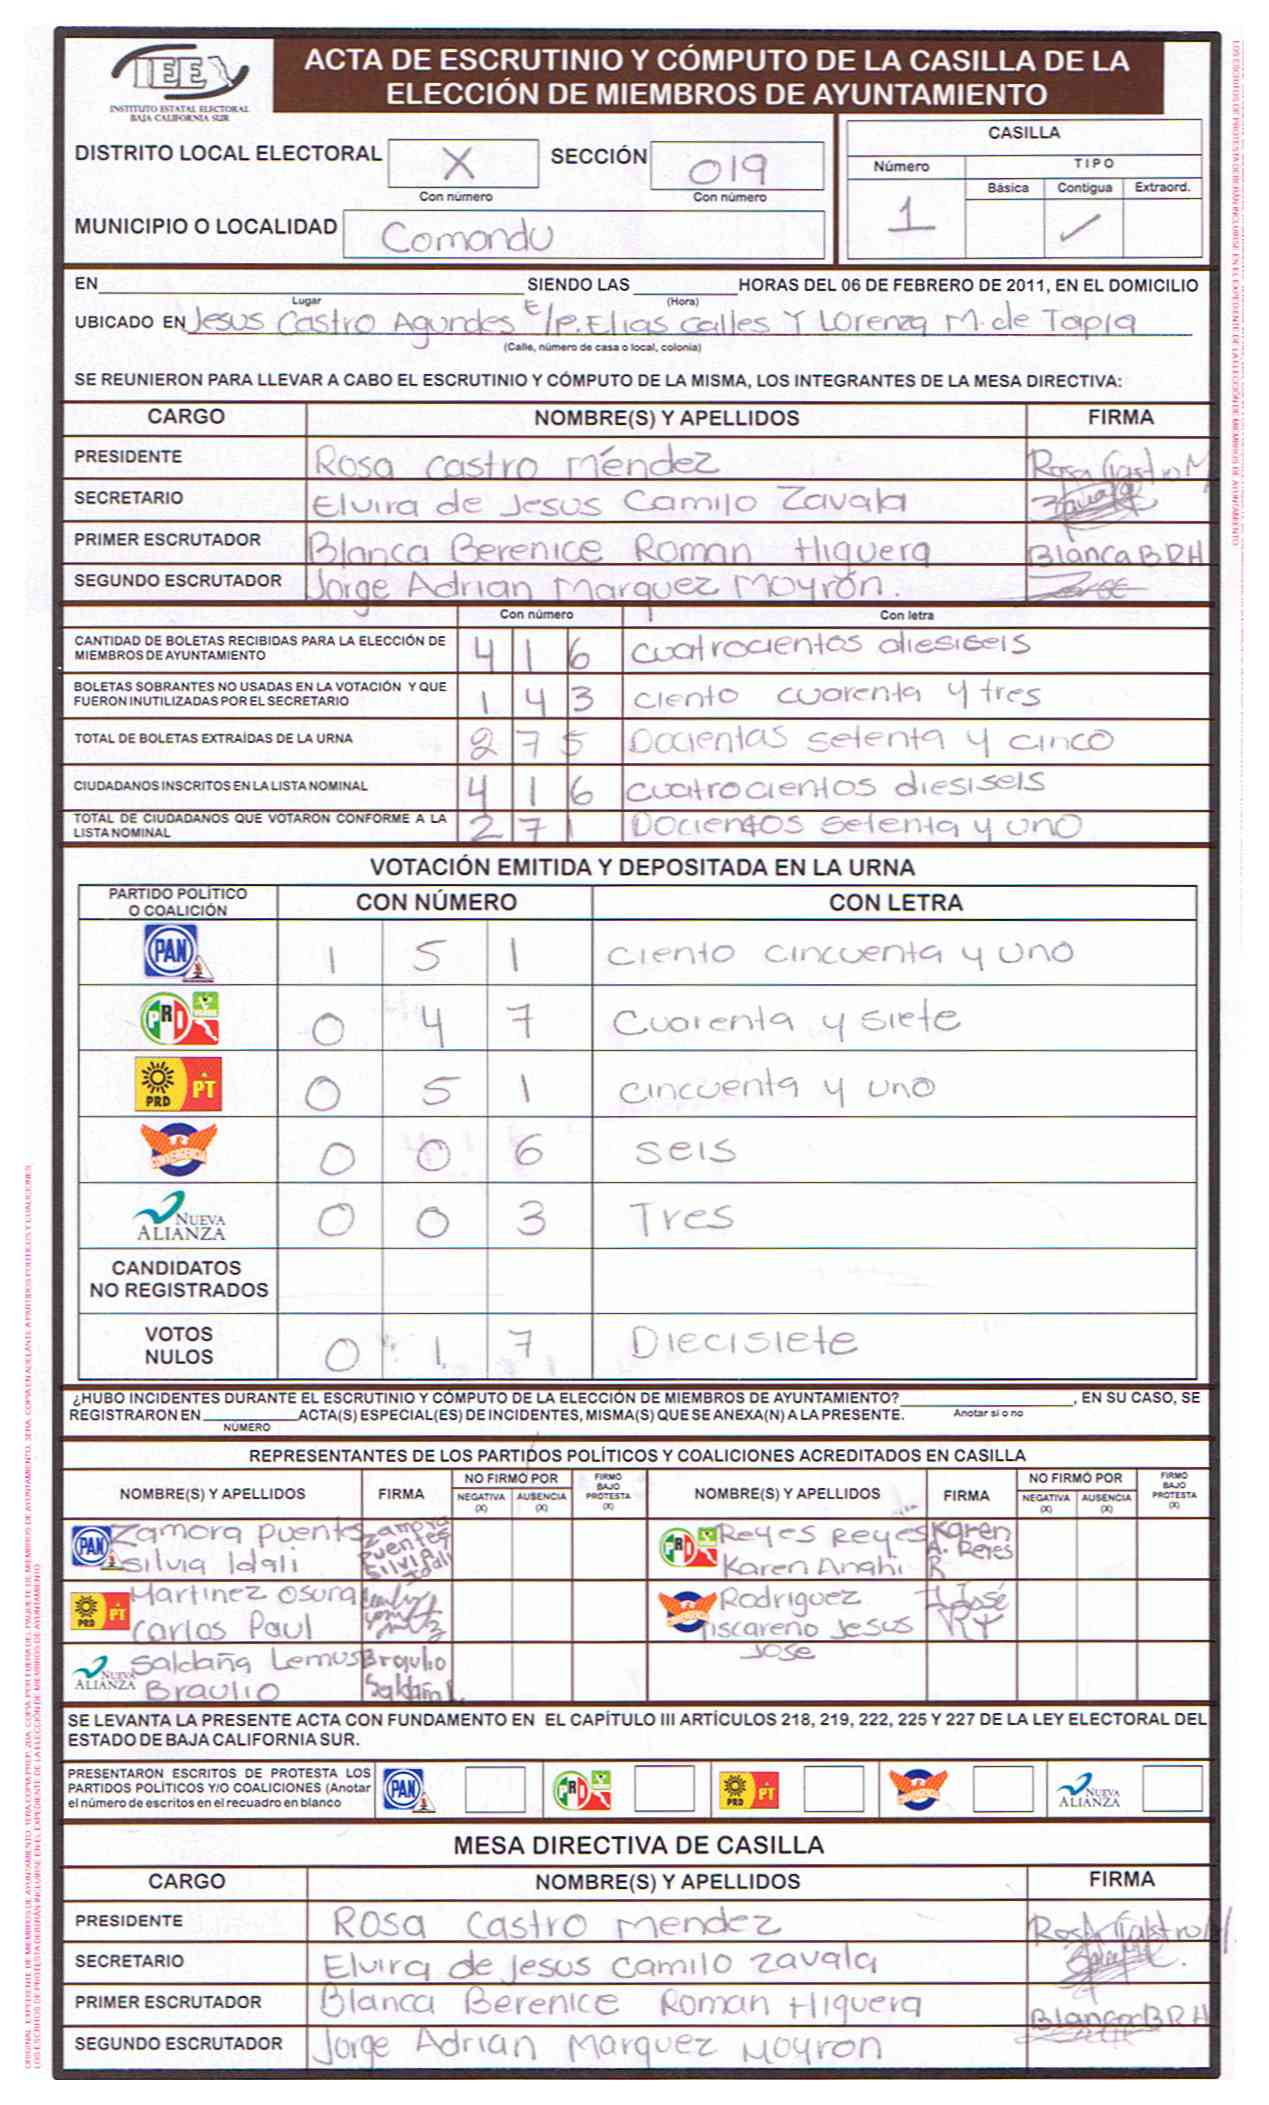 IEEX
INSTITUTO ESTATAL ELECTORAL
BAJA CALIFORNIA SUR
ACTA DE ESCRUTINIO Y CÓMPUTO DE LA CASILLA DE LA
ELECCIÓN DE MIEMBROS DE AYUNTAMIENTO
DISTRITO LOCAL ELECTORAL X SECCIÓN 019
Con número Con número
MUNICIPIO O LOCALIDAD Comondu
CASILLA
Número TIPO
Básica Contigua Extraord.
1 ✓
EN SIENDO LAS HORAS DEL 06 DE FEBRERO DE 2011, EN EL DOMICILIO
Lugar (Hora)
UBICADO EN Jesus Castro Agundes E/P. Elias Calles Y Lorenza M. de Tapia
(Calle, número de casa o local, colonia)
SE REUNIERON PARA LLEVAR A CABO EL ESCRUTINIO Y CÓMPUTO DE LA MISMA, LOS INTEGRANTES DE LA MESA DIRECTIVA:
CARGO NOMBRE(S) Y APELLIDOS FIRMA
PRESIDENTE Rosa Castro Méndez Rosa Castro M
SECRETARIO Elvira de Jesus Camilo Zavala
PRIMER ESCRUTADOR Blanca Berenice Roman Higuera Blanca BRH
SEGUNDO ESCRUTADOR Jorge Adrian Marquez Moyrón.
Con número Con letra
CANTIDAD DE BOLETAS RECIBIDAS PARA LA ELECCIÓN DE
MIEMBROS DE AYUNTAMIENTO 4 1 6 cuatrocientos diesiseis
BOLETAS SOBRANTES NO USADAS EN LA VOTACIÓN Y QUE
FUERON INUTILIZADAS POR EL SECRETARIO 1 4 3 ciento cuarenta y tres
TOTAL DE BOLETAS EXTRAÍDAS DE LA URNA 2 7 5 Docientas setenta y cinco
CIUDADANOS INSCRITOS EN LA LISTA NOMINAL 4 1 6 cuatrocientos diesiseis
TOTAL DE CIUDADANOS QUE VOTARON CONFORME A LA
LISTA NOMINAL 2 7 1 Docientos setenta y uno
VOTACIÓN EMITIDA Y DEPOSITADA EN LA URNA
PARTIDO POLÍTICO
O COALICIÓN CON NÚMERO CON LETRA
PAN 1 5 1 ciento cincuenta y uno
PRI VERDE 0 4 7 Cuarenta y siete
PRD PT 0 5 1 cincuenta y uno
CONVERGENCIA 0 0 6 seis
NUEVA ALIANZA 0 0 3 Tres
CANDIDATOS
NO REGISTRADOS
VOTOS
NULOS 0 1 7 Diecisiete
¿HUBO INCIDENTES DURANTE EL ESCRUTINIO Y CÓMPUTO DE LA ELECCIÓN DE MIEMBROS DE AYUNTAMIENTO? , EN SU CASO, SE
REGISTRARON EN ACTA(S) ESPECIAL(ES) DE INCIDENTES, MISMA(S) QUE SE ANEXA(N) A LA PRESENTE. Anotar sí o no
NÚMERO
REPRESENTANTES DE LOS PARTIDOS POLÍTICOS Y COALICIONES ACREDITADOS EN CASILLA
NOMBRE(S) Y APELLIDOS FIRMA NO FIRMÓ POR NEGATIVA (X) AUSENCIA (X) FIRMÓ BAJO PROTESTA (X) NOMBRE(S) Y APELLIDOS FIRMA NO FIRMÓ POR NEGATIVA (X) AUSENCIA (X) FIRMÓ BAJO PROTESTA (X)
PAN Zamora Puentes Silvia Idali Zamora Puentes Silvia Idali
PRI Reyes Reyes Karen Anahi Karen A. Reyes R
PRD PT Martinez Osuna Carlos Paul
Rodriguez Tiscareño Jesus Jose
NUEVA ALIANZA Saldaña Lemus Braulio Braulio Saldaña L.
SE LEVANTA LA PRESENTE ACTA CON FUNDAMENTO EN EL CAPÍTULO III ARTÍCULOS 218, 219, 222, 225 Y 227 DE LA LEY ELECTORAL DEL
ESTADO DE BAJA CALIFORNIA SUR.
PRESENTARON ESCRITOS DE PROTESTA LOS
PARTIDOS POLÍTICOS Y/O COALICIONES (Anotar
el número de escritos en el recuadro en blanco PAN PRI PRD PT NUEVA ALIANZA
MESA DIRECTIVA DE CASILLA
CARGO NOMBRE(S) Y APELLIDOS FIRMA
PRESIDENTE Rosa Castro Mendez Rosa Castro M
SECRETARIO Elvira de Jesus Camilo Zavala
PRIMER ESCRUTADOR Blanca Berenice Roman Higuera Blanca BRH
SEGUNDO ESCRUTADOR Jorge Adrian Marquez Moyron